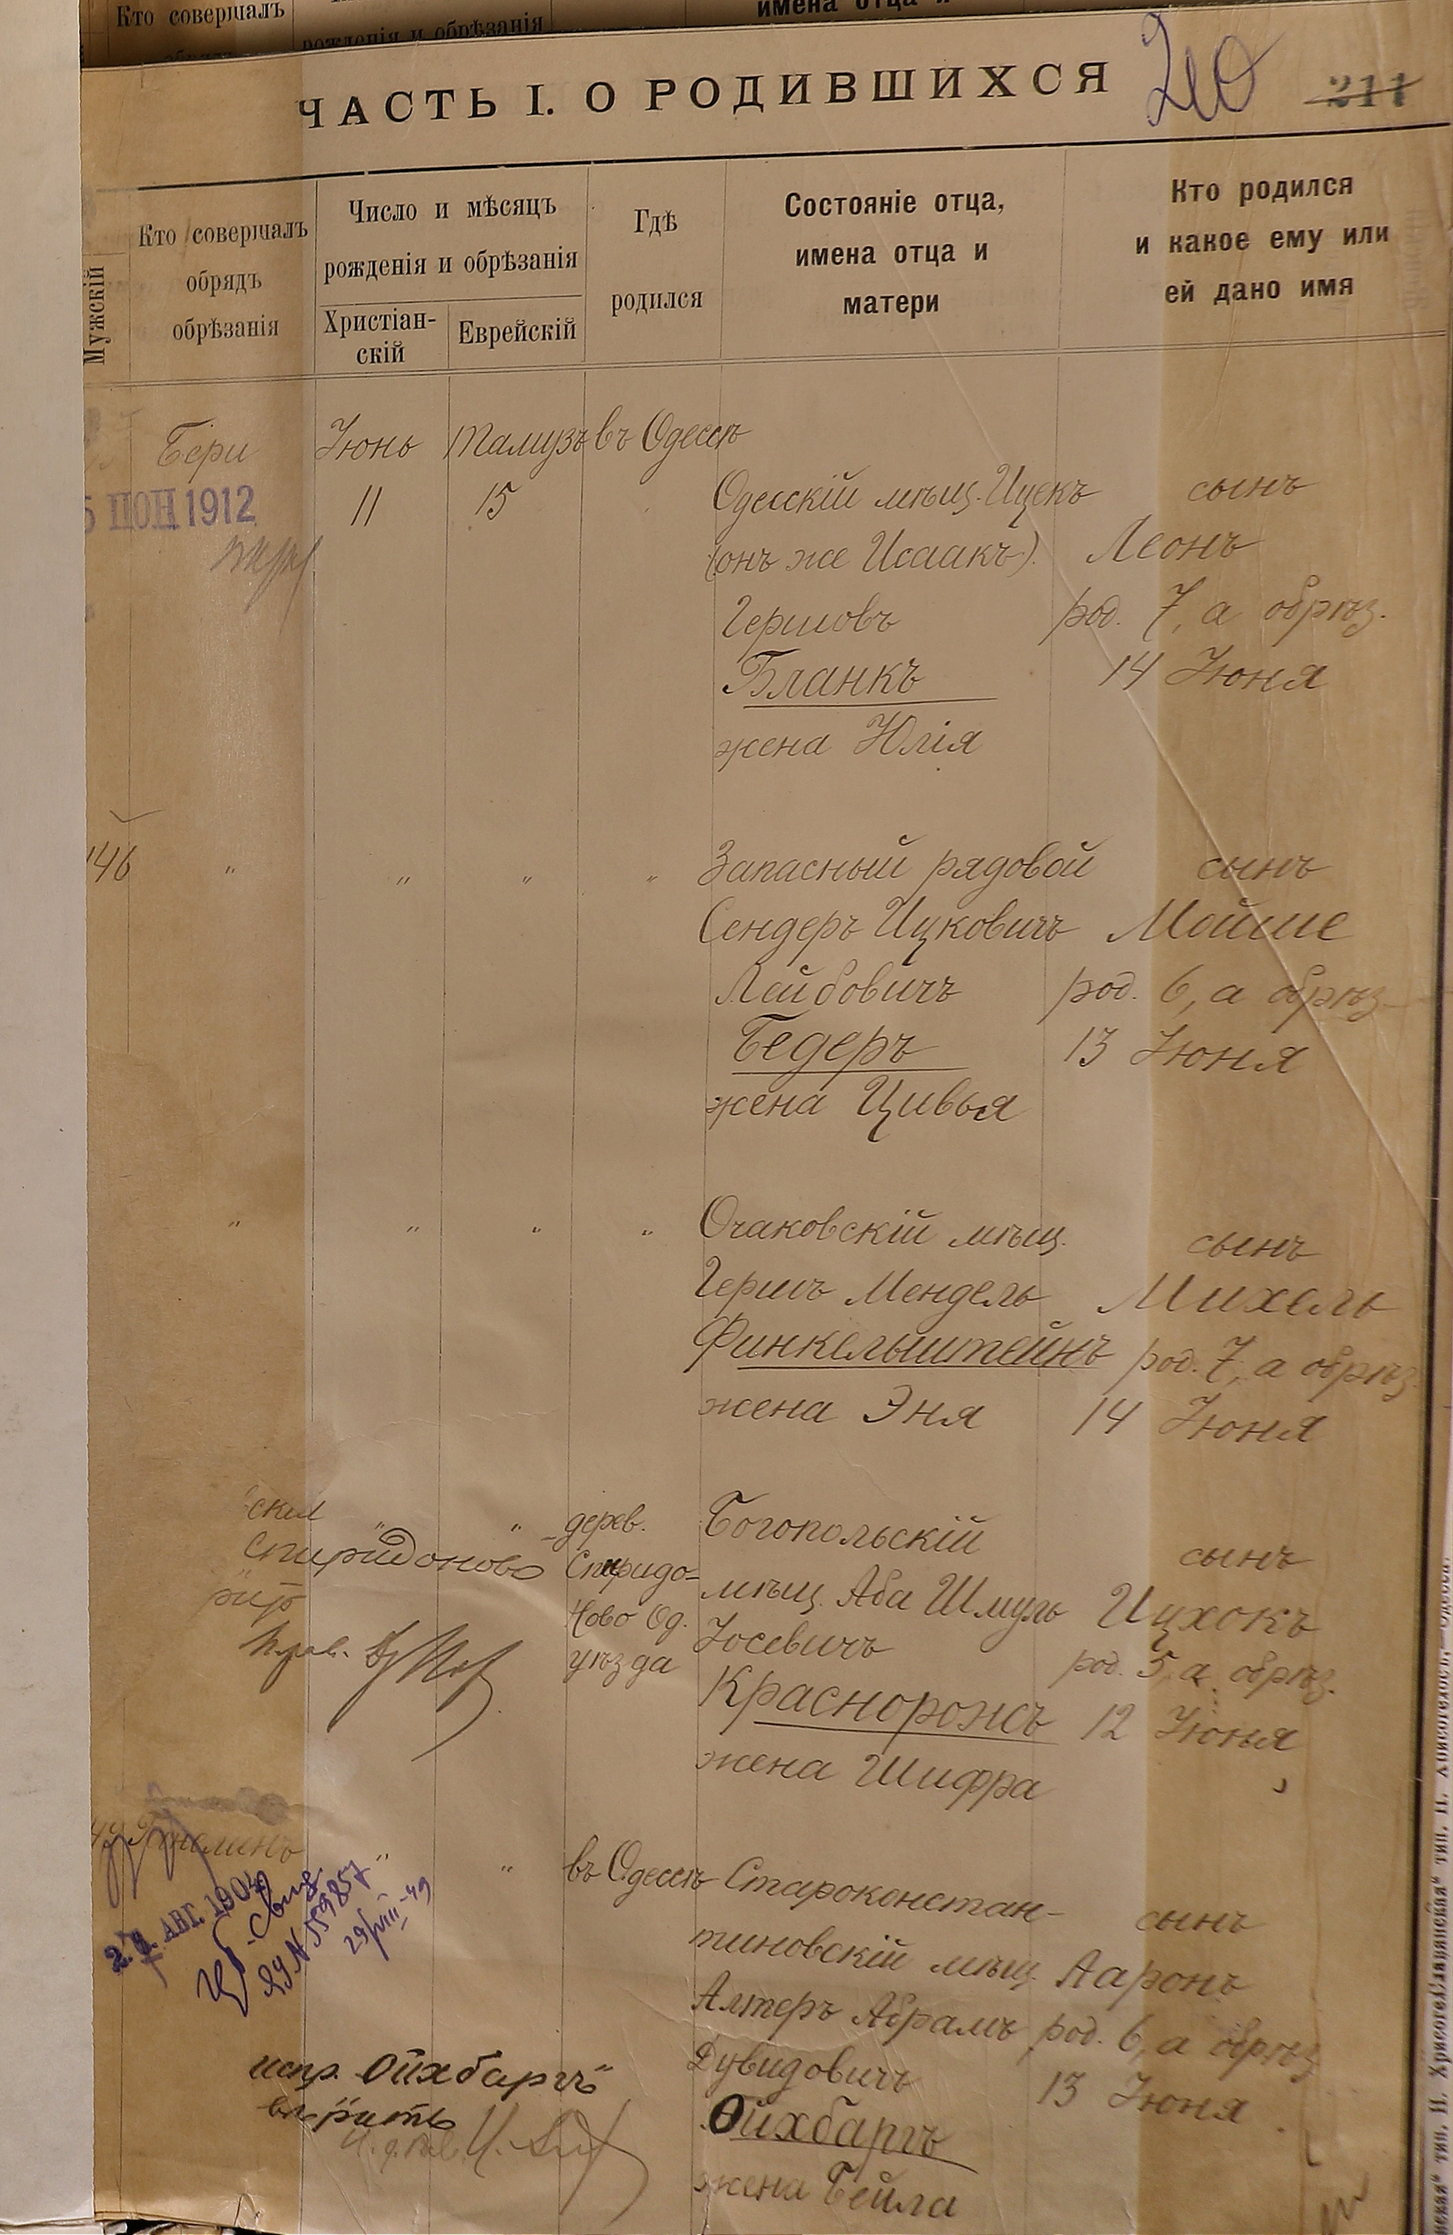 Кто совершалъ
имена отца и
рожденія и обрѣзанія
ЧАСТЬ I. О РОДИВШИХСЯ
210
211
Мужскій
Кто совершалъ
обрядъ
обрѣзанія
Число и мѣсяцъ
рожденія и обрѣзанія
Христіан-
скій
Еврейскій
Гдѣ
родился
Состояніе отца,
имена отца и
матери
Кто родился
и какое ему или
ей дано имя
Бери
Іюнь
Тамузъ
въ Одессѣ
5 ІЮН 1912
11
15
Одесскій мѣщ. Ицекъ
(онъ же Исаакъ).
Гершовъ
Бланкъ
жена Юлія
сынъ
Леонъ
род. 7, а обрѣз.
14 Іюня
146
"
"
"
"
Запасный рядовой
Сендеръ Ицковичъ
Лейбовичъ
Бедеръ
жена Цивья
сынъ
Мойше
род. 6, а обрѣз
13 Іюня
"
"
"
"
Очаковскій мѣщ.
Гершъ Мендель
Финкельштейнъ
жена Эня
сынъ
Михель
род. 7, а обрѣз.
14 Іюня
Спиридоново
"
"
дерев.
Спиридо-
ново Од.
уѣзда
Богопольскій
мѣщ. Аба Шмуль
Іосевичъ
Краснорожъ
жена Шифра
сынъ
Ицхокъ
род. 5, а обрѣз.
12 Іюня
АВГ. 190
29/VIII-49
"
"
въ Одессѣ
Староконстан-
тиновскій мѣщ.
Алтеръ Абрамъ
Дувидовичъ
Ойхбаргъ
жена Бейла
сынъ
Ааронъ
род. 6, а обрѣз
13 Іюня
испр. "Ойхбаргъ"
вѣрить